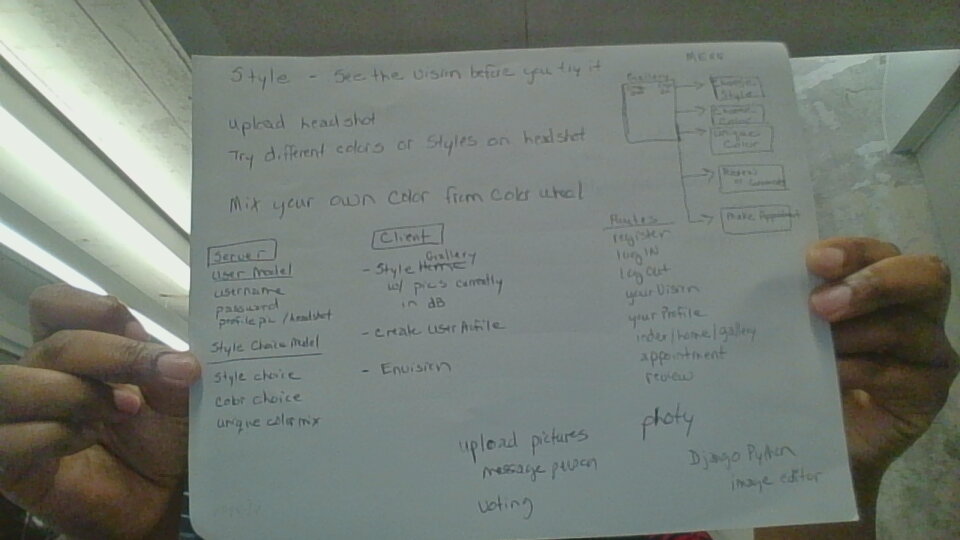 Style - See the vision before you try it
upload headshot
Try different colors or styles on headshot
Mix your own color from color wheel
MERN
Gallery
Style
Color
Unique
Color
Review
Make Appointment
Server
User Model
username
password
profile pic / headshot
Style Choice Model
style choice
color choice
unique color mix
Client
- Style Home Gallery
w/ pics currently
in dB
- Create User Profile
- Envision
Routes
register
log IN
log out
your Vision
your Profile
index/home/gallery
appointment
review
upload pictures
message person
voting
photy
Django Python
image editor